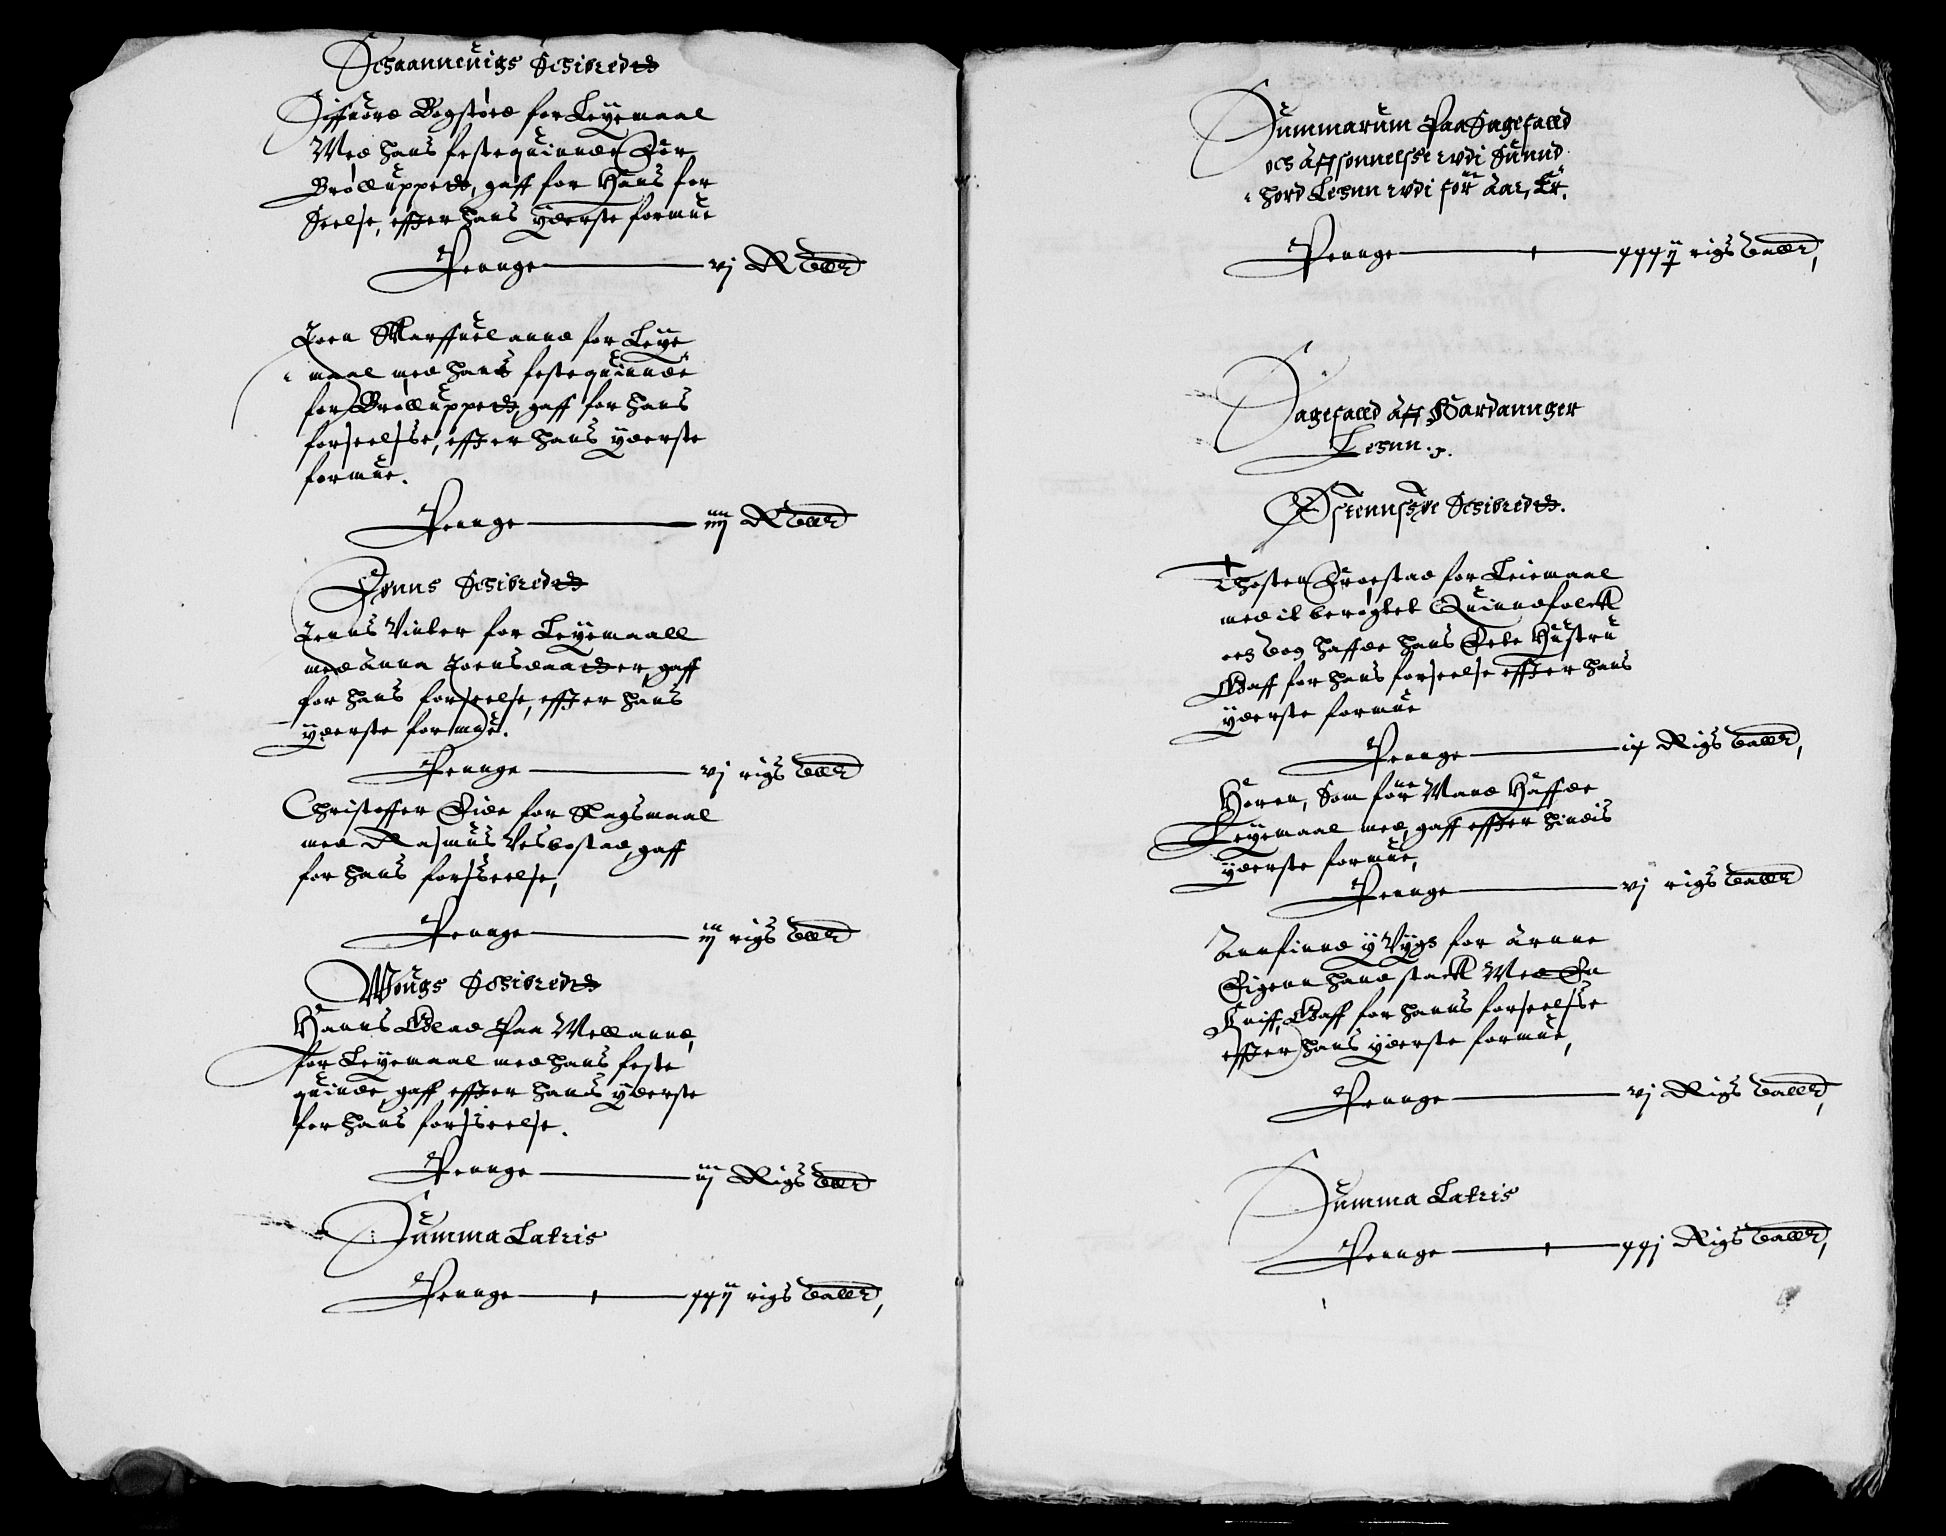 Schaanneuigs Schibrede
Siffuord Bogstöed for Leyemaal
Med hans festequinde För
Brölluppet, gaff for Hans for
Seelse, effter hans yderste formue
Penge vj R dallr
Joen Skarffuelannd for Leye
maal med hans festequinde
for Brölluppet, gaff for hans
forseelsse, effter hans yderste
formue.
Penge iiij R dallr
Schibrede
Jenns Vinter for Leyemaall
med Anna Joensdaatter, gaff
for hans forseelse, effter hans
yderste formue.
Penge vj rigs dallr
Christoffer Eide for Slagsmaal
med Rasmus Vesbostad, gaff
for hans forseelse,
Penge iij rigs dallr
Wougs Schibrede
Hanns Glad Paa Wellannd,
for Leyemaal med hans feste
quinde, gaff effter hans yderste
for hans forsseelse.
Penge iij Rigs dallr
Summa Latris
Penge xxij rigs dallr,
Summarum Paa Sagefald
och Affsonnelsse wdi Sund
hord Lehnn wdi for Aar, Er.
Penge rigs dallr,
Sagefald Aff Hardannger
Lehnn.
Schibrede.
Thosten Froestad for Leiemaal
med it berögtet Quindfolck
och dog haffde hans Eete Hustru
Gaff for hans forseelse effter hans
yderste formue
Penge ix Rigs dallr,
Horen, Som forne Mand Haffde
Leyemaal med, gaff effter hindis
yderste formue,
Penge vj rigs dallr
Annfind y Vygs for Arnne
Eigenn hand stack Med En
Kniff, Gaff for hanns forseelsse
effter hans yderste formue,
Penge vj Rigs dallr,
Summa Latris
Penge xxj Rigs dallr,